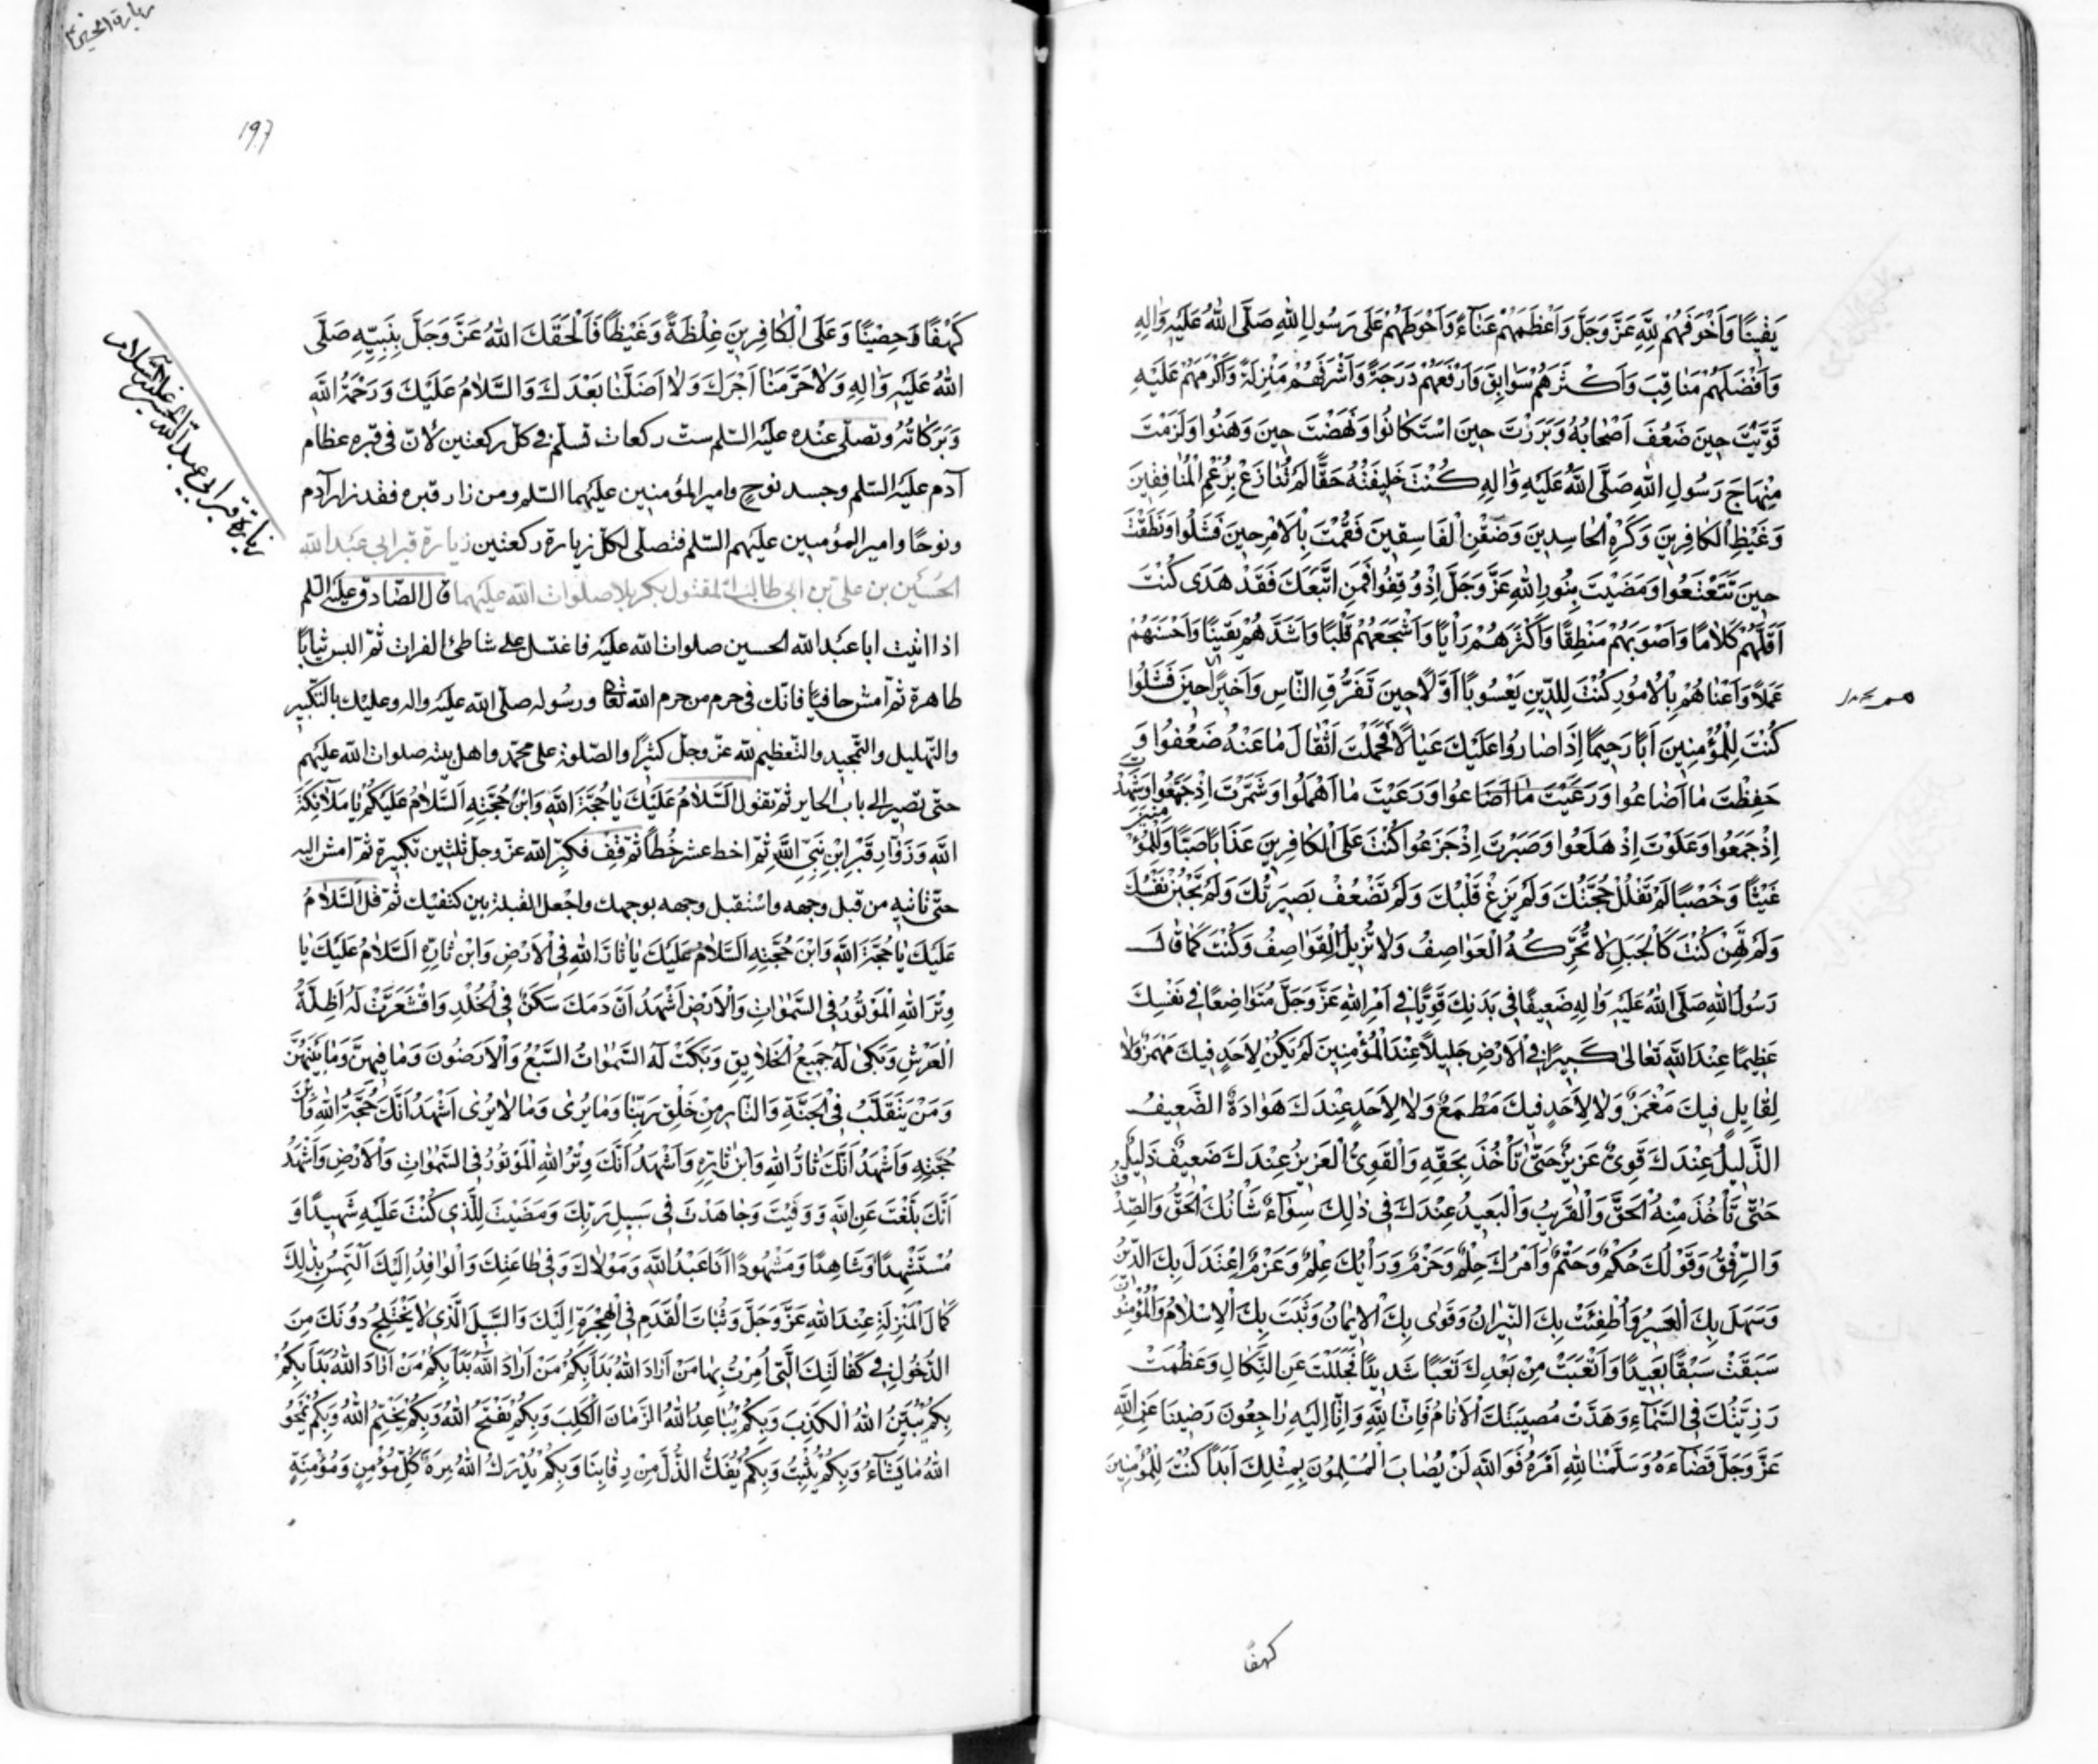 يَقينًا وَاَخْوَفَهُمْ لِلّٰهِ عَزَّ وَجَلَّ وَاَعْظَمَهُمْ عَنَاءً وَاَحْوَطَهُمْ عَلَى رَسُولِ اللّٰهِ صَلَّى اللّٰهُ عَلَيْهِ وَاٰلِهِ
وَاَفْضَلَهُمْ مَنَاقِبَ وَاَكْثَرَهُمْ سَوَابِقَ وَاَرْفَعَهُمْ دَرَجَةً وَاَشْرَفَهُمْ مَنْزِلَةً وَاَكْرَمَهُمْ عَلَيْهِ
قَوِيْتَ حِينَ ضَعُفَ اَصْحَابُهُ وَبَرَزْتَ حِينَ اسْتَكَانُوا وَنَهَضْتَ حِينَ وَهَنُوا وَلَزِمْتَ
مِنْهَاجَ رَسُولِ اللّٰهِ صَلَّى اللّٰهُ عَلَيْهِ وَاٰلِهِ كُنْتَ خَلِيفَتَهُ حَقًّا لَمْ تُنَازَعْ بِرَغْمِ الْمُنَافِقِينَ
وَغَيْظِ الْكَافِرِينَ وَكُرْهِ الْحَاسِدِينَ وَضِغْنِ الْفَاسِقِينَ فَقُمْتَ بِالْاَمْرِ حِينَ فَشَلُوا وَنَطَقْتَ
حِينَ تَتَعْتَعُوا وَمَضَيْتَ بِنُورِ اللّٰهِ عَزَّ وَجَلَّ اِذْ وُقِفُوا فَمَنِ اتَّبَعَكَ فَقَدْ هَدَى كُنْتَ
اَقَلَّهُمْ كَلَامًا وَاَصْوَبَهُمْ مَنْطِقًا وَاَكْثَرَهُمْ رَاْيًا وَاَشْجَعَهُمْ قَلْبًا وَاَشَدَّهُمْ يَقِينًا وَاَحْسَنَهُمْ
عَمَلًا وَاَعْنَاهُمْ بِالْاُمُورِ كُنْتَ لِلدِّينِ يَعْسُوبًا اَوَّلًا حِينَ تَفَرُّقِ النَّاسِ وَاَخِيرًا حِينَ فَشَلُوا
كُنْتَ لِلْمُؤْمِنِينَ اَبًا رَحِيمًا اِذَا صَارُوا عَلَيْكَ عَيَالًا فَحَمَلْتَ اَثْقَالَ مَا عَنْهُ ضَعُفُوا وَ
حَفِظْتَ مَا اَضَاعُوا وَرَعَيْتَ مَا اَضَاعُوا وَرَعَيْتَ مَا اَهْمَلُوا وَشَمَّرْتَ اِذْ جَمَعُوا وَشَهِدْتَ
اِذْ جَمَعُوا وَعَلَوْتَ اِذْ هَلَعُوا وَصَبَرْتَ اِذْ جَزَعُوا كُنْتَ عَلَى الْكَافِرِينَ عَذَابًا صَبًّا وَلِلْمُؤْمِنِينَ
غَيْثًا وَخَصْبًا لَمْ تَفْلُلْ حُجَّتُكَ وَلَمْ يَزِغْ قَلْبُكَ وَلَمْ تَضْعُفْ بَصِيرَتُكَ وَلَمْ تَجْبُنْ نَفْسُكَ
وَلَمْ تَهِنْ كُنْتَ كَالْجَبَلِ لَا تُحَرِّكُهُ الْعَوَاصِفُ وَلَا تُزِيلُهُ الْقَوَاصِفُ وَكُنْتَ كَمَا قَالَ
رَسُولُ اللّٰهِ صَلَّى اللّٰهُ عَلَيْهِ وَاٰلِهِ ضَعِيفًا فِي بَدَنِكَ قَوِيًّا فِي اَمْرِ اللّٰهِ عَزَّ وَجَلَّ مُتَوَاضِعًا فِي نَفْسِكَ
عَظِيمًا عِنْدَ اللّٰهِ تَعَالٰى كَبِيرًا فِي الْاَرْضِ جَلِيلًا عِنْدَ الْمُؤْمِنِينَ لَمْ يَكُنْ لِاَحَدٍ فِيكَ مَهْمَزٌ وَلَا
لِقَايِلٍ فِيكَ مَغْمَزٌ وَلَا لِاَحَدٍ فِيكَ مَطْمَعٌ وَلَا لِاَحَدٍ عِنْدَكَ هَوَادَةٌ الضَّعِيفُ
الذَّلِيلُ عِنْدَكَ قَوِيٌّ عَزِيزٌ حَتّٰى تَأْخُذَ بِحَقِّهِ وَالْقَوِيُّ الْعَزِيزُ عِنْدَكَ ضَعِيفٌ ذَلِيلٌ
حَتّٰى تَأْخُذَ مِنْهُ الْحَقَّ وَالْقَرِيبُ وَالْبَعِيدُ عِنْدَكَ فِي ذٰلِكَ سَوَاءٌ شَانُكَ الْحَقُّ وَالصِّدْقُ
وَالرِّفْقُ وَقَوْلُكَ حُكْمٌ وَحَتْمٌ وَاَمْرُكَ حِلْمٌ وَحَزْمٌ وَرَأْيُكَ عِلْمٌ وَعَزْمٌ اِعْتَدَلَ بِكَ الدِّينُ
وَسَهَلَ بِكَ الْعَسِيرُ وَاُطْفِئَتْ بِكَ النِّيرَانُ وَقَوٰى بِكَ الْاِيمَانُ وَثَبَتَ بِكَ الْاِسْلَامُ وَالْمُؤْمِنُونَ
سَبَقْتَ سَبْقًا بَعِيدًا وَاَتْعَبْتَ مِنْ بَعْدِكَ تَعَبًا شَدِيدًا فَجَلَلْتَ عَنِ النَّكَالِ وَعَظُمَتْ
رَزِيَّتُكَ فِي السَّمَآءِ وَهَدَّتْ مُصِيبَتُكَ الْاَنَامَ فَاِنَّا لِلّٰهِ وَاِنَّا اِلَيْهِ رَاجِعُونَ رَضِينَا عَنِ اللّٰهِ
عَزَّ وَجَلَّ قَضَاءَهُ وَسَلَّمْنَا لِلّٰهِ اَمْرَهُ فَوَ اللّٰهِ لَنْ يُصَابَ الْمُسْلِمُونَ بِمِثْلِكَ اَبَدًا كُنْتَ لِلْمُؤْمِنِينَ
كهفا
197
زيارة قبر ابي عبد الله الحسين عليه السلام
كَهْفًا وَحِصْنًا وَعَلَى الْكَافِرِينَ غِلْظَةً وَغَيْظًا فَاَلْحَقَكَ اللّٰهُ عَزَّ وَجَلَّ بِنَبِيِّهِ صَلَّى
اللّٰهُ عَلَيْهِ وَاٰلِهِ وَلَا حَرَّمَنَا اَجْرَكَ وَلَا اَضَلَّنَا بَعْدَكَ وَالسَّلَامُ عَلَيْكَ وَرَحْمَةُ اللّٰهِ
وَبَرَكَاتُهُ وتصلّى عنده عليه السّلم ستّ ركعات تسلّم في كلّ ركعتين لانّ في قبره عظام
آدم عليه السّلم وجسد نوحٍ وامير المؤمنين عليهما السّلم ومن زار قبره فقد زار آدم
ونوحًا وامير المؤمنين عليهم السّلم فتصلّى لكلّ زيارة ركعتين زيارة قبر ابي عبد الله
الحسين بن على بن ابى طالب المقتول بكربلا صلوات الله عليهما قال الصّادق عليه السّلم
اذا اتيت ابا عبد الله الحسين صلوات الله عليه فاغتسل على شاطئ الفرات ثمّ البس ثيابًا
طاهرة ثمّ امش حافيًا فانّك في حرم من حرم الله تعا ورسوله صلّى الله عليه واله وعليك بالتّكبير
والتّهليل والتّمجيد والتّعظيم لله عزّ وجلّ كثيرًا والصّلوة على محمّد واهل بيته صلوات الله عليهم
حتّى تصير الى باب الحاير ثمّ تقول اَلسَّلَامُ عَلَيْكَ يَا حُجَّةَ اللّٰهِ وَابْنَ حُجَّتِهِ اَلسَّلَامُ عَلَيْكُمْ يَا مَلٰٓائِكَةَ
اللّٰهِ وَزُوَّارِ قَبْرِ ابْنِ نَبِيِّ اللّٰهِ ثمّ اخط عشر خُطًا ثمّ قف فكبّر الله عزّ وجلّ ثلثين تكبيرة ثمّ امش اليه
حتّى تاتيه من قبل وجهه واستقبل وجهه بوجهك واجعل القبلة بين كتفيك ثمّ قل اَلسَّلَامُ
عَلَيْكَ يَا حُجَّةَ اللّٰهِ وَابْنَ حُجَّتِهِ اَلسَّلَامُ عَلَيْكَ يَا ثَارَ اللّٰهِ فِي الْاَرْضِ وَابْنَ ثَارِهِ اَلسَّلَامُ عَلَيْكَ يَا
وِتْرَ اللّٰهِ الْمَوْتُورُ فِي السَّمٰوَاتِ وَالْاَرْضِ اَشْهَدُ اَنَّ دَمَكَ سَكَنَ فِي الْخُلْدِ وَاقْشَعَرَّتْ لَهُ اَظِلَّةُ
الْعَرْشِ وَبَكٰى لَهُ جَمِيعُ الْخَلَايِقِ وَبَكَتْ لَهُ السَّمٰوَاتُ السَّبْعُ وَالْاَرَضُونَ وَمَا فِيهِنَّ وَمَا بَيْنَهُنَّ
وَمَنْ يَتَقَلَّبُ فِي الْجَنَّةِ وَالنَّارِ مِنْ خَلْقِ رَبِّنَا وَمَا يُرٰى وَمَا لَا يُرٰى اَشْهَدُ اَنَّكَ حُجَّةُ اللّٰهِ وَابْنُ
حُجَّتِهِ وَاَشْهَدُ اَنَّكَ ثَارُ اللّٰهِ وَابْنُ ثَارِهِ وَاَشْهَدُ اَنَّكَ وِتْرُ اللّٰهِ الْمَوْتُورُ فِي السَّمٰوَاتِ وَالْاَرْضِ وَاَشْهَدُ
اَنَّكَ بَلَّغْتَ عَنِ اللّٰهِ وَوَفَيْتَ وَجَاهَدْتَ فِي سَبِيلِ رَبِّكَ وَمَضَيْتَ لِلَّذِي كُنْتَ عَلَيْهِ شَهِيدًا وَ
مُسْتَشْهِدًا وَشَاهِدًا وَمَشْهُودًا اَنَا عَبْدُ اللّٰهِ وَمَوْلَاكَ وَفِي طَاعَتِكَ وَالْوَافِدُ اِلَيْكَ اَلْتَمِسُ بِذٰلِكَ
كَمَالَ الْمَنْزِلَةِ عِنْدَ اللّٰهِ عَزَّ وَجَلَّ وَثُبَاتَ الْقَدَمِ فِي الْهِجْرَةِ اِلَيْكَ وَالسَّبِيلَ الَّذِي لَا يَخْتَلِجُ دُونَكَ مِنَ
الدُّخُولِ فِي كَفَالَتِكَ الَّتِي اُمِرْتُ بِهَا مَنْ اَرَادَ اللّٰهُ بَدَاَ بِكُمْ مَنْ اَرَادَ اللّٰهُ بَدَاَ بِكُمْ مَنْ اَرَادَ اللّٰهُ بَدَاَ بِكُمْ
بِكُمْ يُبَيِّنُ اللّٰهُ الْكَذِبَ وَبِكُمْ يُبَاعِدُ اللّٰهُ الزَّمَانَ الْكَلِبَ وَبِكُمْ يَفْتَحُ اللّٰهُ وَبِكُمْ يَخْتِمُ اللّٰهُ وَبِكُمْ يَمْحُو
اللّٰهُ مَا يَشَآءُ وَبِكُمْ يُثْبِتُ وَبِكُمْ يَفُكُّ الذُّلَّ مِنْ رِقَابِنَا وَبِكُمْ يُدْرِكُ اللّٰهُ تِرَةَ كُلِّ مُؤْمِنٍ وَمُؤْمِنَةٍ